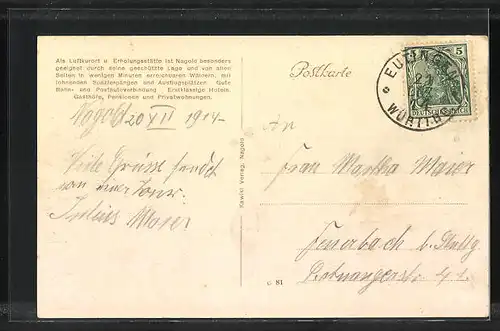 Als Luftkurort u. Erholungsstätte ist Nagold besonders
geeignet durch seine geschützte Lage und von allen
Seiten in wenigen Minuten erreichbaren Wäldern, mit
lohnenden Spaziergängen und Ausflugsplätzen. Gute
Bahn- und Postautoverbindung. Erstklassige Hotels,
Gasthöfe, Pensionen und Privatwohnungen.
Nagold 20 VII 1914
Viele Grüsse sendet
von einer Tour
Julius Maier
Verlag, Nagold
c 81
Postkarte
An
Frau Martha Maier
Feuerbach b. Stuttg
5
EUTINGEN
WÜRTT.
DEUTSCHES REICH